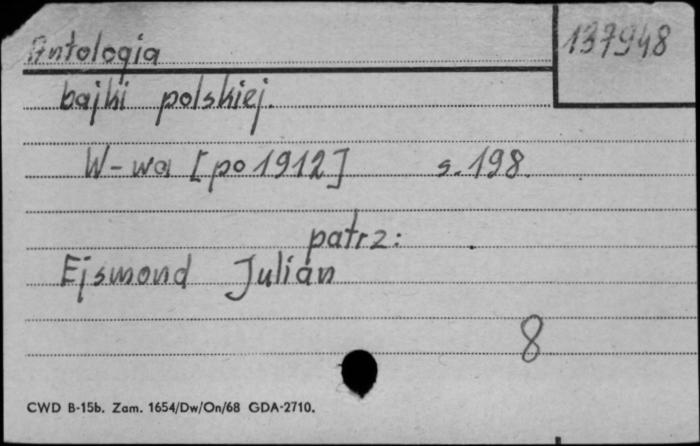 Antologia
137948
bajki polskiej.
W-wa [po 1912] s. 198.
patrz:
Ejsmond Julian
8
CWD B-15b. Zam. 1654/Dw/On/68 GDA-2710.